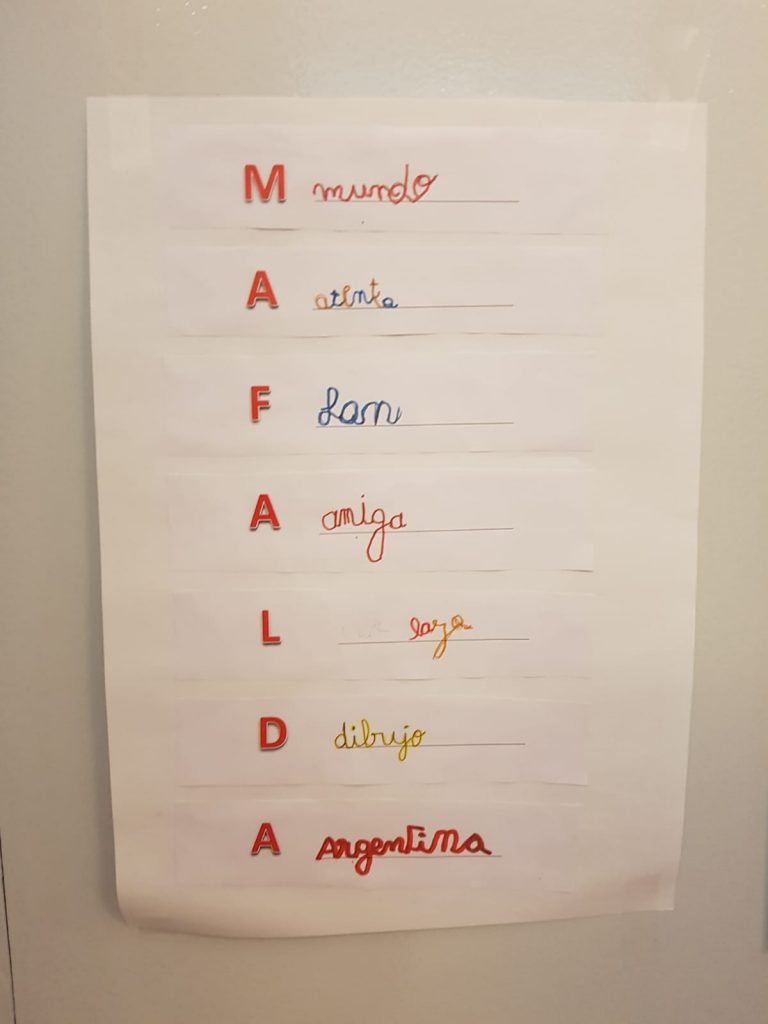 M mundo
A atenta
F Fan
A amiga
L
D dibujo
A Argentina